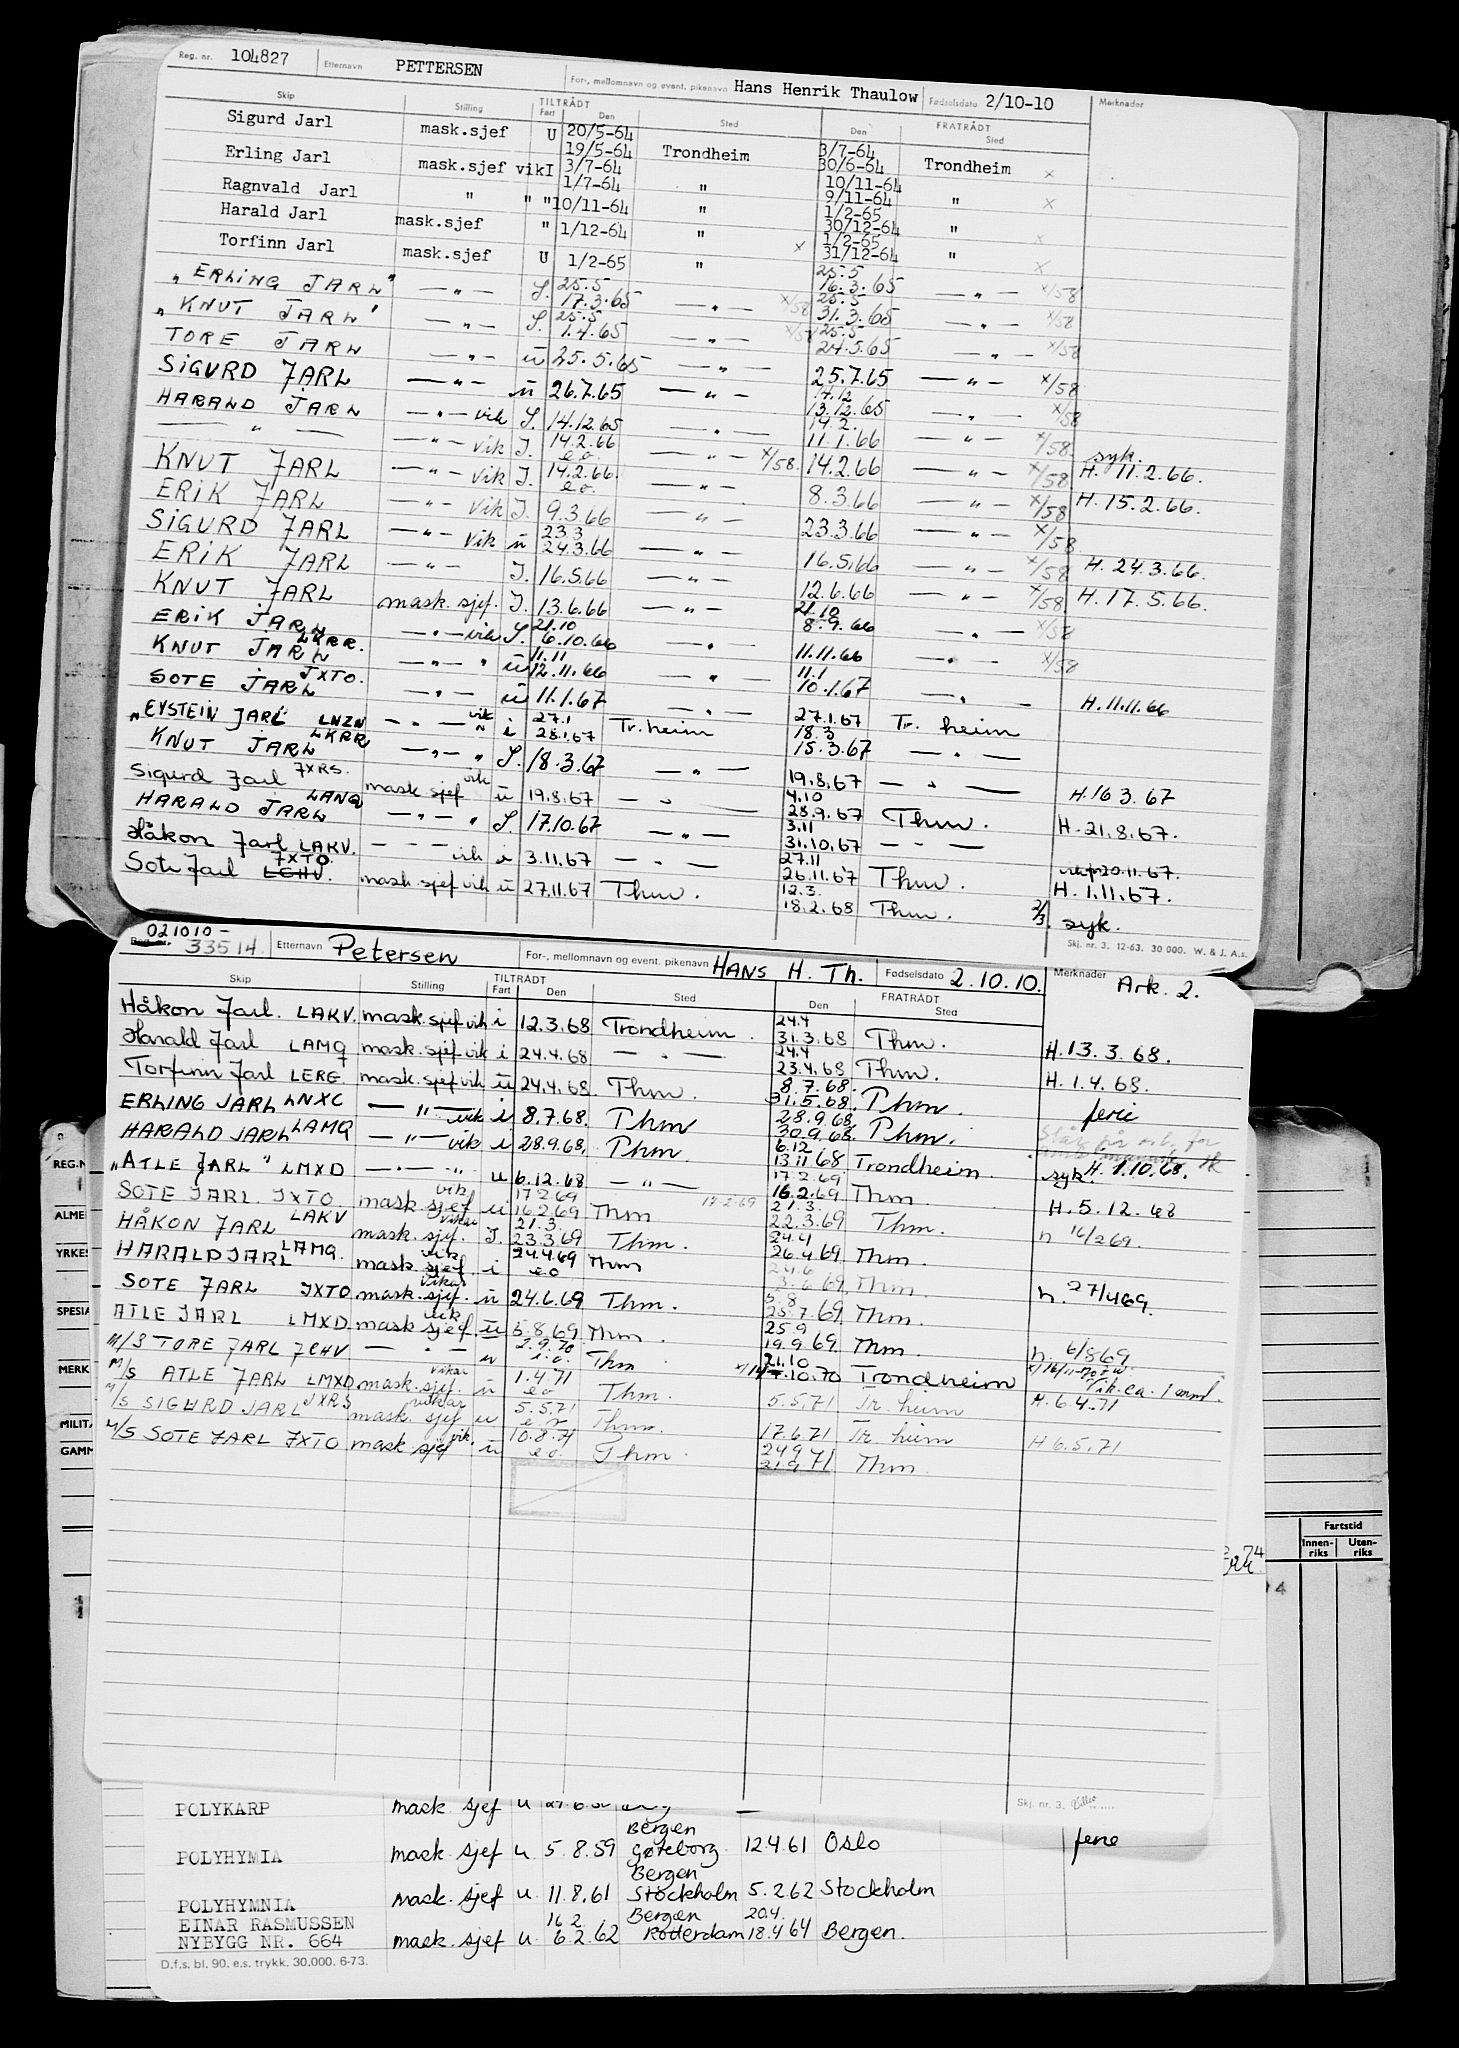 Reg. nr. 104827 Etternavn PETTERSEN For-, mellomnavn og event. pikenavn Hans Henrik Thaulow Fødselsdato 2/10-10 Merknader
Skip Stilling TILTRÅDT Fart Den Sted Den FRATRÅDT Sted
Sigurd Jarl mask.sjef U 20/5-64 19/5-64 Trondheim 3/7-64 30/6-64 Trondheim x
Erling Jarl mask.sjef vikI 3/7-64 1/7-64 " 10/11-64 9/11-64 " x
Ragnvald Jarl " " "10/11-64 " 1/2-65 30/12-64 " x
Harald Jarl mask.sjef " 1/12-64 " x 1/2-65 31/12-64 " x
Torfinn Jarl mask.sjef U 1/2-65 " 25.5 16.3.65 — " — x/58
"ERLING JARL" — " — I. 25.5 17.3.65 — " — x/58 25.5 31.3.65 — " — x/58
"KNUT JARL" — " — I. 25.5 1.4.65 — " — x/58 25.5 24.5.65 — " — x/58
TORE JARL — " — u 25.5.65 — " — 25.7.65 — " — x/58
SIGURD JARL — " — u 26.7.65 — " — 14.12 13.12.65 — " — x/58
HARALD JARL — " — vik I. 14.12.65 — " — 14.2. 11.1.66 — " — x/58 syk.
— " — — " — vik I. 14.2.66 e.o. — " — x/58 14.2.66 — " — x/58 H. 11.2.66.
KNUT JARL — " — vik I. 14.2.66. e.o. — " — 8.3.66 — " — x/58 H. 15.2.66.
ERIK JARL — " — vik I. 9.3.66 — " — 23.3.66 — " — x/58
SIGURD JARL — " — vik u 23.3 24.3.66 — " — 16.5.66 — " — x/58 H. 24.3.66.
ERIK JARL — " — I. 16.5.66 — " — 12.6.66 — " — x/58 H. 17.5.66.
KNUT JARL mask. sjef. I. 13.6.66 — " — 21.10 8.9.66 — " — x/58
ERIK JARL LKRR. — " — vik I. 21.10 6.10.66 — " — 11.11.66 — " — x/58
KNUT JARL — " — " u 11.11 12.11.66 — " — 11.1 10.1.67 — " — H. 11.11.66
SOTE JARL JXTO. — " — u 11.1.67 — " — 27.1.67 Tr. heim
"EYSTEIN JARL" LNZN — " — vik i 27.1 28.1.67 Tr. heim 18.3 15.3.67 — " —
KNUT JARL LKRR — " — " I. 18.3.67 — " — 19.8.67 — " — H. 16 3. 67
Sigurd Jarl JXRS. mask sjef vik u 19.8.67 — " — 4.10 28.9.67 Thm. H. 21.8.67.
HARALD JARL LAMQ — " — " I. 17.10.67 — " — 3.11 31.10.67 — " —
Håkon Jarl LAKV. — " — vik i 3.11.67 — " — 27.11 26.11.67 Thm. 20.11.67. H. 1.11.67.
Sote Jarl JXTO. LGHV. mask sjef vik u 27.11.67 Thm. 12.3. 18.2.68 Thm. 2/3. syk.
Skj. nr. 3. 12-63. 30 000. W. & J. A.s.
021010-
Reg. nr. 33514. Etternavn Petersen For-, mellomnavn og event. pikenavn HANS H. Th. Fødselsdato 2.10.10. Merknader Ark. 2.
Skip Stilling TILTRÅDT Fart Den Sted Den FRATRÅDT Sted
Håkon Jarl. LAKV. mask. sjef vik i 12.3.68 Trondheim. 24.4 31.3.68 Thm. H. 13. 3. 68.
Harald Jarl LAMQ mask. sjef vik i 24.4.68 — " — 24.4 23.4.68 Thm. H. 1.4.68.
Torfinn Jarl LERG mask. sjef vik u 24.4.68 Thm. 8.7.68. 31.5.68. Thm. ferie
ERLING JARL LNXC — " — vik i 8.7.68. Thm 28.9.68 30.9.68. Thm.
HARALD JARL LAMQ — " — vik i 28.9.68. Thm. 6.12 13.11 68 Trondheim syk. H. 1.10.68.
"ATLE JARL" LMXD — " — " u 6.12.68 — " — 17.2.69 16.2.69 Thm H. 5. 12. 68
SOTE JARL JXTO. mask. sjef vik u 17.2.69 16.2.69 Thm 17-2-69 21.3. 22.3.69 Thm. h 16/2 69.
HÅKON JARL LAKV mask. sjef. vikar I. 21.3. 23.3.69 Thm. 24.4 26.4.69 Thm
HARALD JARL LAMQ. mask. sjef. vik i 24.4.69 e o Thm 24.6 3.6.69 Thm. h. 27/4 69.
SOTE JARL JXTO mask. sjef. vikar u 24.6.69 Thm. 5.8 25.7.69 Thm.
ATLE JARL LMXD mask sjef. vik u 5.8.69 Thm. 25.9 19.9.69 Thm. h. 6/8 69
M/S TORE JARL JCHV — " — u 2.9.70 e.o. Thm 21.10 .10.70 Trondheim Vik. ca. 1 mnd.
M/S ATLE JARL LMXD mask. sjef. vikar u 1.4.71 e o Thm. 5.5.71 Tr. heim H. 6.4.71
M/S SIGURD JARL JXRS mask. sjef vikar u 5.5.71 e o Thm. 17.6.71 Tr heim H 6.5.71
M/S SOTE JARL JXTO mask sjef vik. u 10.8.71 e.o. Thm 24.9 21.9.71 Thm.
Skj. nr. 3.
REG.N
ALME
YRKES
SPESIA
MERK
MILITÆ
GAMM
Fartstid
Innen-riks Uten-riks
POLYKARP mask sjef u
POLYHYMIA mask. sjef u. 5.8.59 Bergen Gøteborg. 12.4.61 Oslo ferie
POLYHYMNIA mask. sjef u. 11.8.61 Bergen Stockholm 5.2.62 Stockholm
EINAR RASMUSSEN
NYBYGG NR. 664 mask. sjef u. 16 2. 6.2.62 Bergen Rotterdam 20.4. 18.4 64 Bergen.
D.f.s. bl. 90. e.s. trykk. 30.000. 6-73.